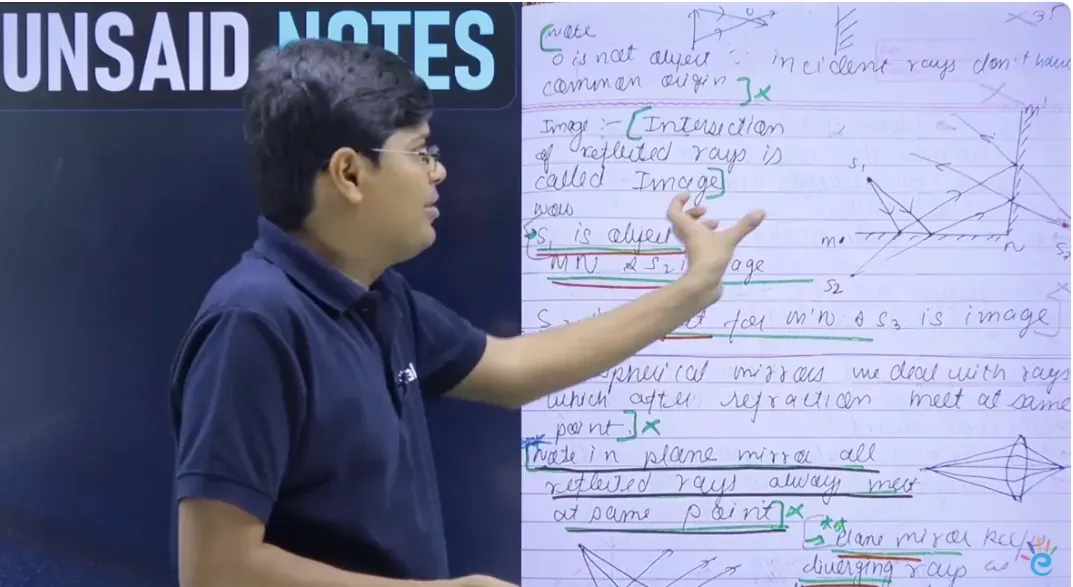 UNSAID NOTES
Note
O is not object ∵ incident rays don't have
common origin ] x
Image :- [Intersection
of reflected rays is
called Image]
now
S1 is object
MN & S2 i age
for M'N & S3 is image
spherical mirrors we deal with rays
which after refraction meet at same
point ] x
[Note in plane mirror all
reflected rays always meet
at same point] x
** plane mirror
diverging rays as
M'
S1
M
N
S2
S3
e